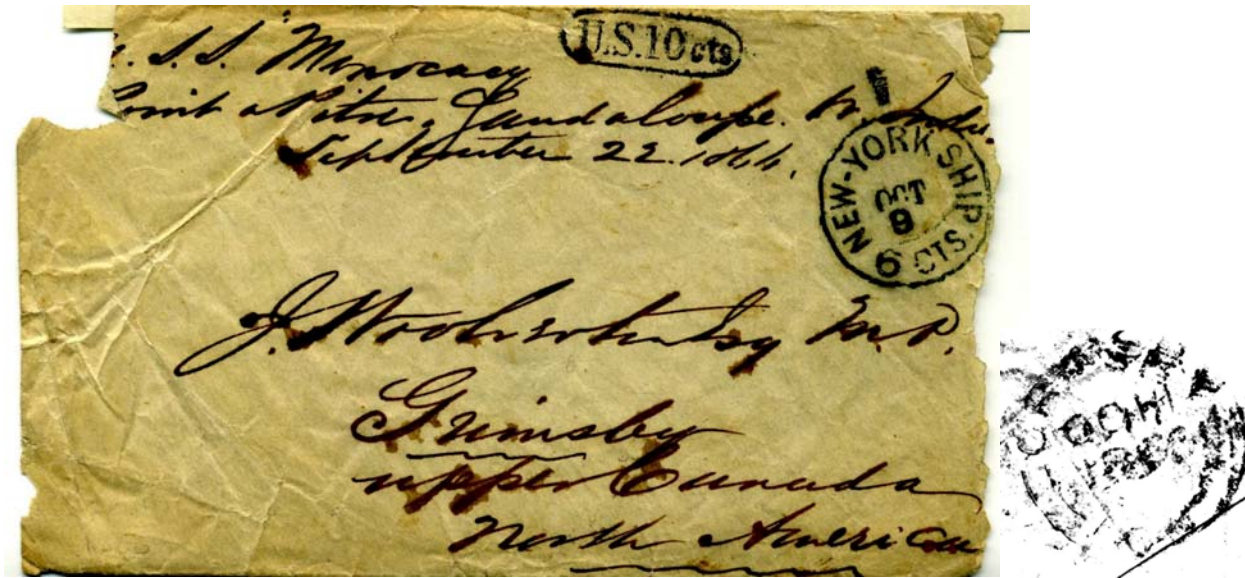 U.S. 10 cts
S. S. Monocacy
Point a Pitre, Guadaloupe. W. Indi
September 22. 1866.
NEW-YORK SHIP.
OCT
9
6 CTS.
J. Esq M.P.
Grimsby
upper Canada
North America